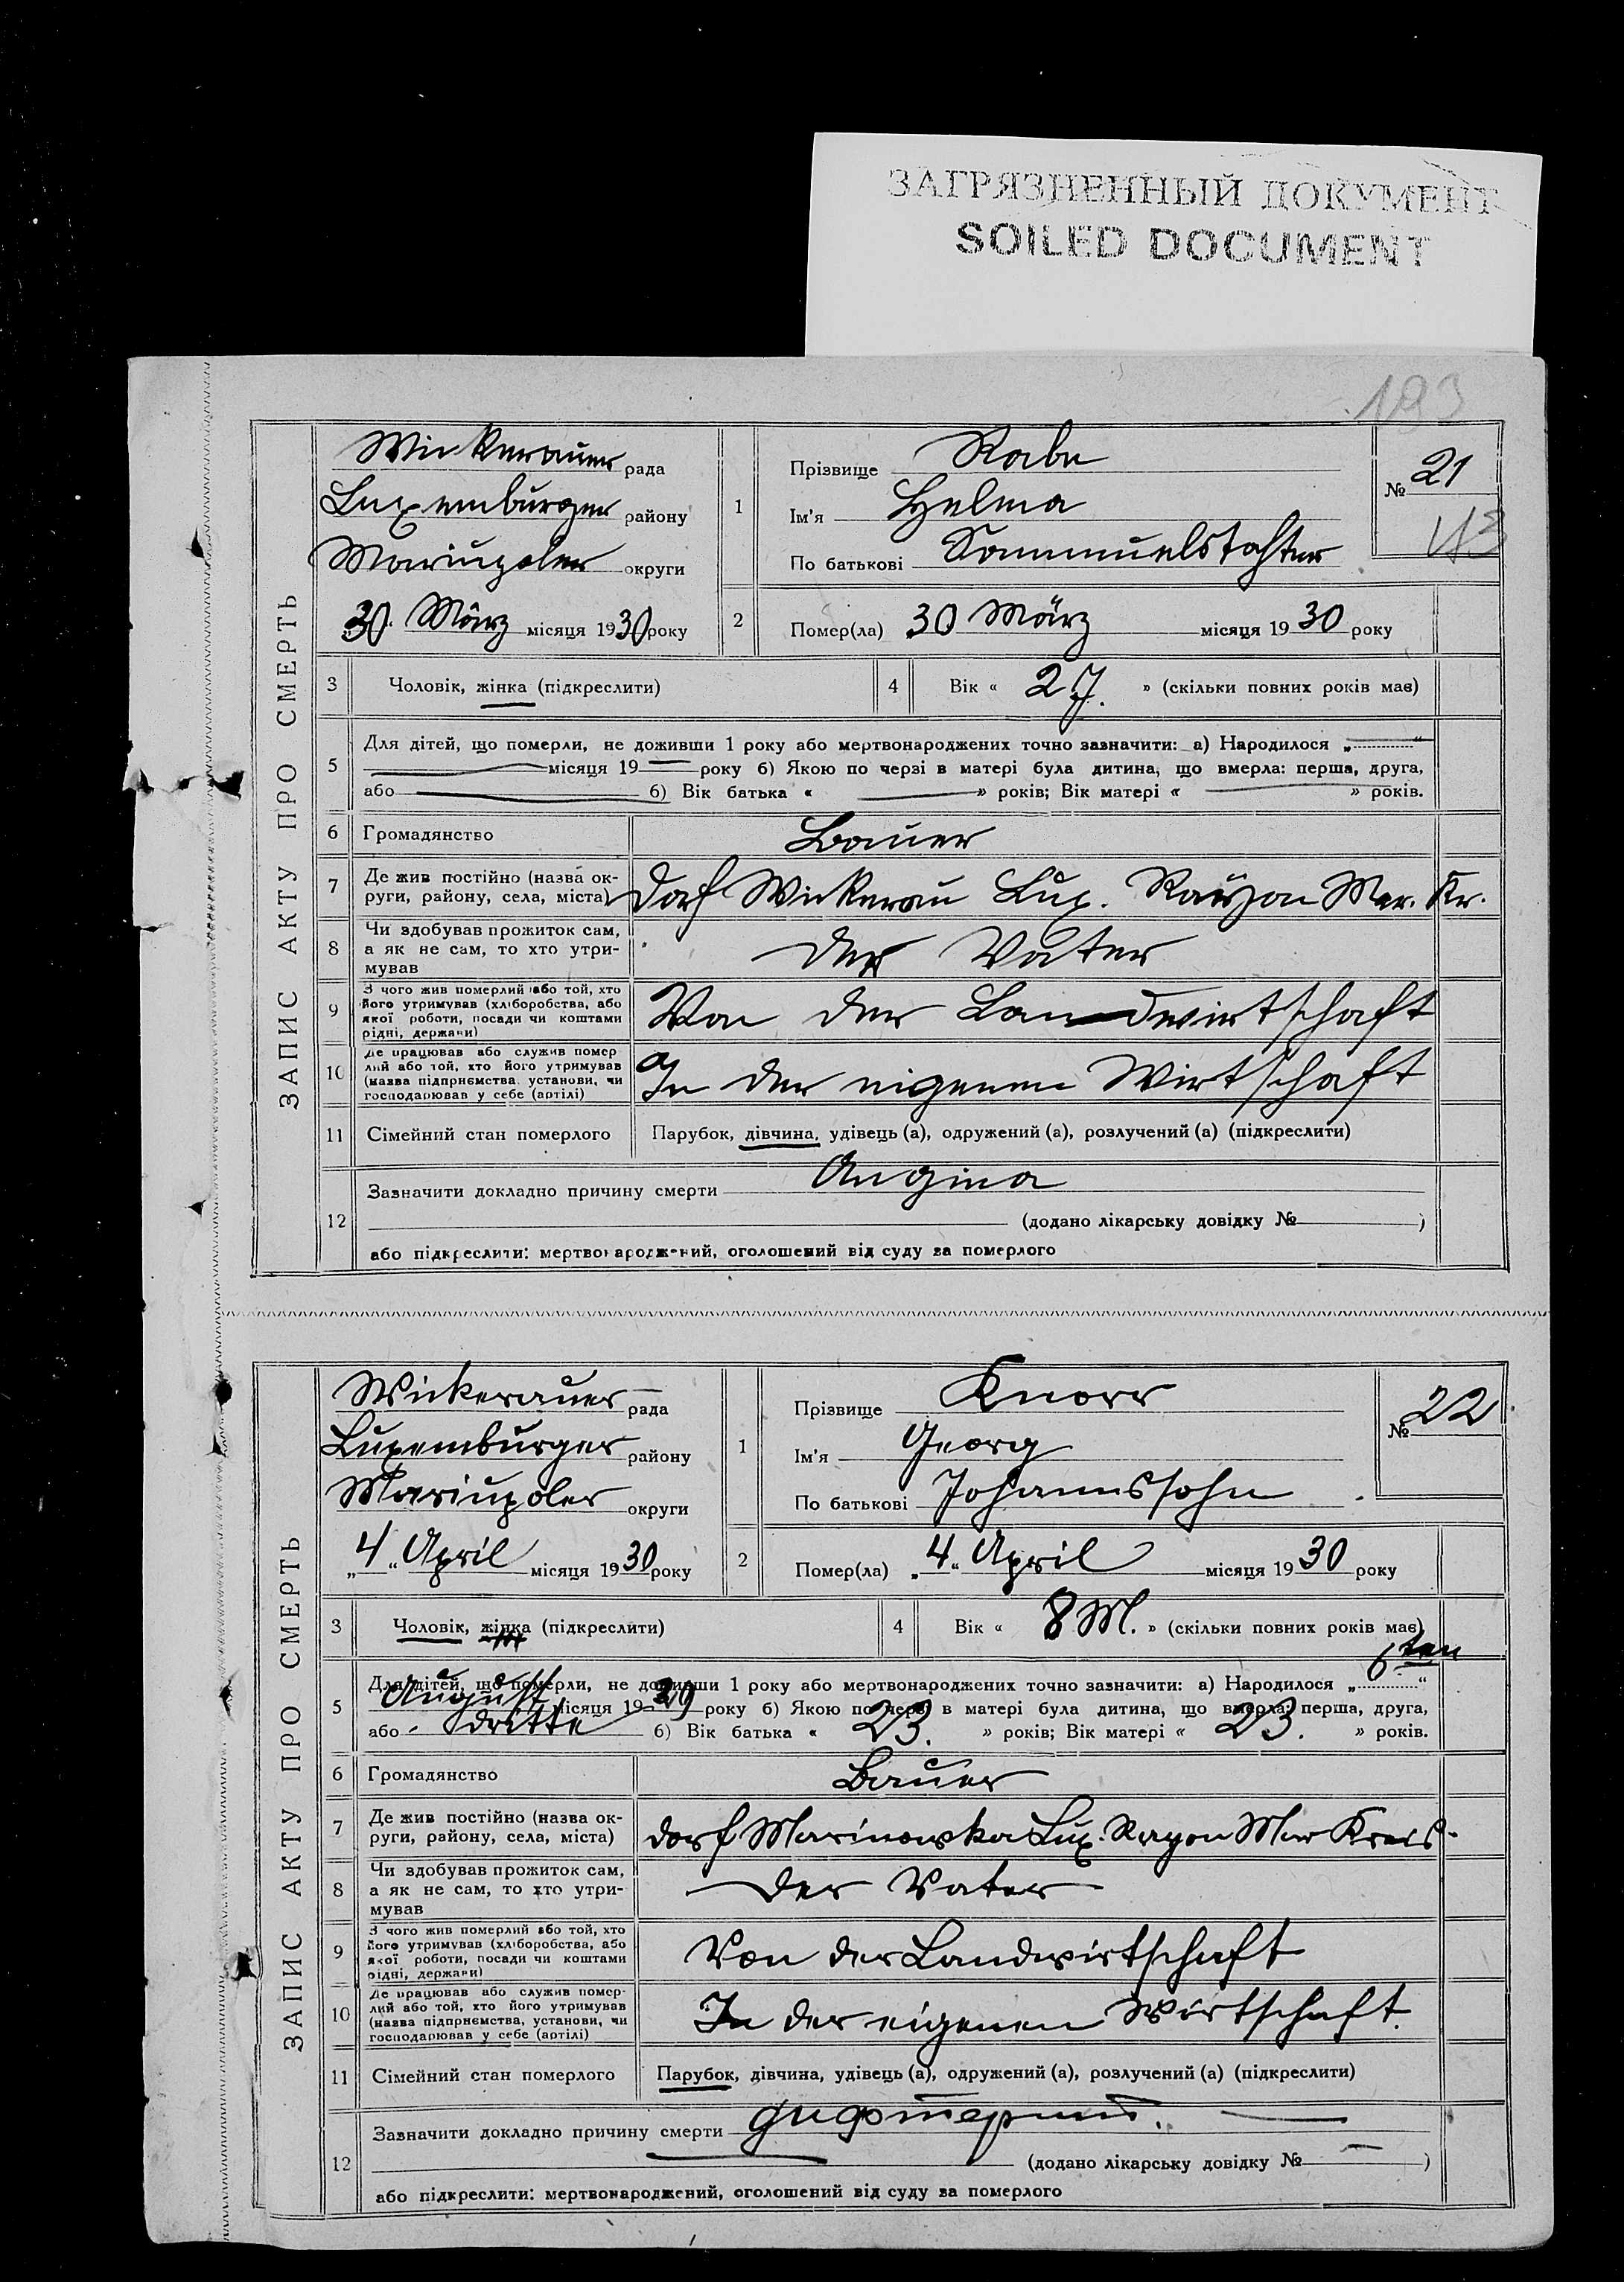 ЗАГРЯЗНЕННЫЙ ДОКУМЕНТ
SOILED DOCUMENT
193
ЗАПИС АКТУ ПРО СМЕРТЬ
Wickerauer рада
Luxemburger району
Mariupoler округи
„30“ März місяця 1930 року
1
Прізвище Rabe
Ім'я Helma
По батькові Sammuelstochter
№ 21
2
Помер(ла) 30 März місяця 1930 року
3 Чоловік, жінка (підкреслити)
4 Вік « 2 J. » (скільки повних років має)
5 Для дітей, що померли, не доживши 1 року або мертвонароджених точно зазначити: а) Народилося „ “
місяця 19 року б) Якою по черзі в матері була дитина, що вмерла: перша, друга,
або б) Вік батька « » років; Вік матері « » років.
6 Громадянство Bauer
7 Де жив постійно (назва ок-
руги, району, села, міста) Dorf Wickerau Lux. Rayon Mar. Kr.
8 Чи здобував прожиток сам,
а як не сам, то хто утри-
мував Der Vater
9 З чого жив померлий або той, хто
його утримував (хліборобства, або
якої роботи, посади чи коштами
рідні, держави) Von der Landwirtschaft
10 Де працював або служив помер
лий або той, хто його утримував
(назва підприємства, установи, чи
господарював у себе (артілі) In der eigenen Wirtschaft
11 Сімейний стан померлого Парубок, дівчина, удівець (а), одружений (а), розлучений (а) (підкреслити)
12 Зазначити докладно причину смерти Angina
(додано лікарську довідку № )
або підкреслити: мертвонароджений, оголошений від суду за померлого
ЗАПИС АКТУ ПРО СМЕРТЬ
Wickerauer рада
Luxemburger району
Mariupoler округи
„4“ April місяця 1930 року
1
Прізвище Knorr
Ім'я Georg
По батькові Johannssohn
№ 22
2
Помер(ла) „4“ April місяця 1930 року
3 Чоловік, жінка (підкреслити)
4 Вік « 8 M. » (скільки повних років має)
5 Для дітей, що померли, не доживши 1 року або мертвонароджених точно зазначити: а) Народилося „6ten“
August місяця 1929 року б) Якою по черзі в матері була дитина, що вмерла: перша, друга,
або dritte б) Вік батька « 23. » років; Вік матері « 23. » років.
6 Громадянство Bauer
7 Де жив постійно (назва ок-
руги, району, села, міста) Dorf Marinowka Lux. Rayon Mar Kreis.
8 Чи здобував прожиток сам,
а як не сам, то хто утри-
мував Der Vater
9 З чого жив померлий або той, хто
його утримував (хліборобства, або
якої роботи, посади чи коштами
рідні, держави) Von der Landwirtschaft
10 Де працював або служив помер-
лий або той, хто його утримував
(назва підприємства, установи, чи
господарював у себе (артілі) In der eigenen Wirtschaft.
11 Сімейний стан померлого Парубок, дівчина, удівець (а), одружений (а), розлучений (а) (підкреслити)
12 Зазначити докладно причину смерти
(додано лікарську довідку № )
або підкреслити: мертвонароджений, оголошений від суду за померлого